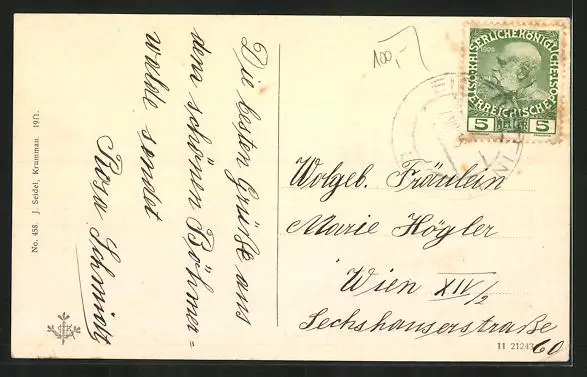 Die besten Grüße aus
dem schönen Böhmer=
walde sendet
Rosa Schmidt
No. 458. J. Seidel, Krummau. 1911.
100,-
KAISERLICHE KÖNIGLICHE
ÖSTERREICHISCHE
1908
5 HELLER 5
Wolgeb. Fräulein
Marie Högler
Wien XIV/2
Sechshauserstraße
60
11 21243